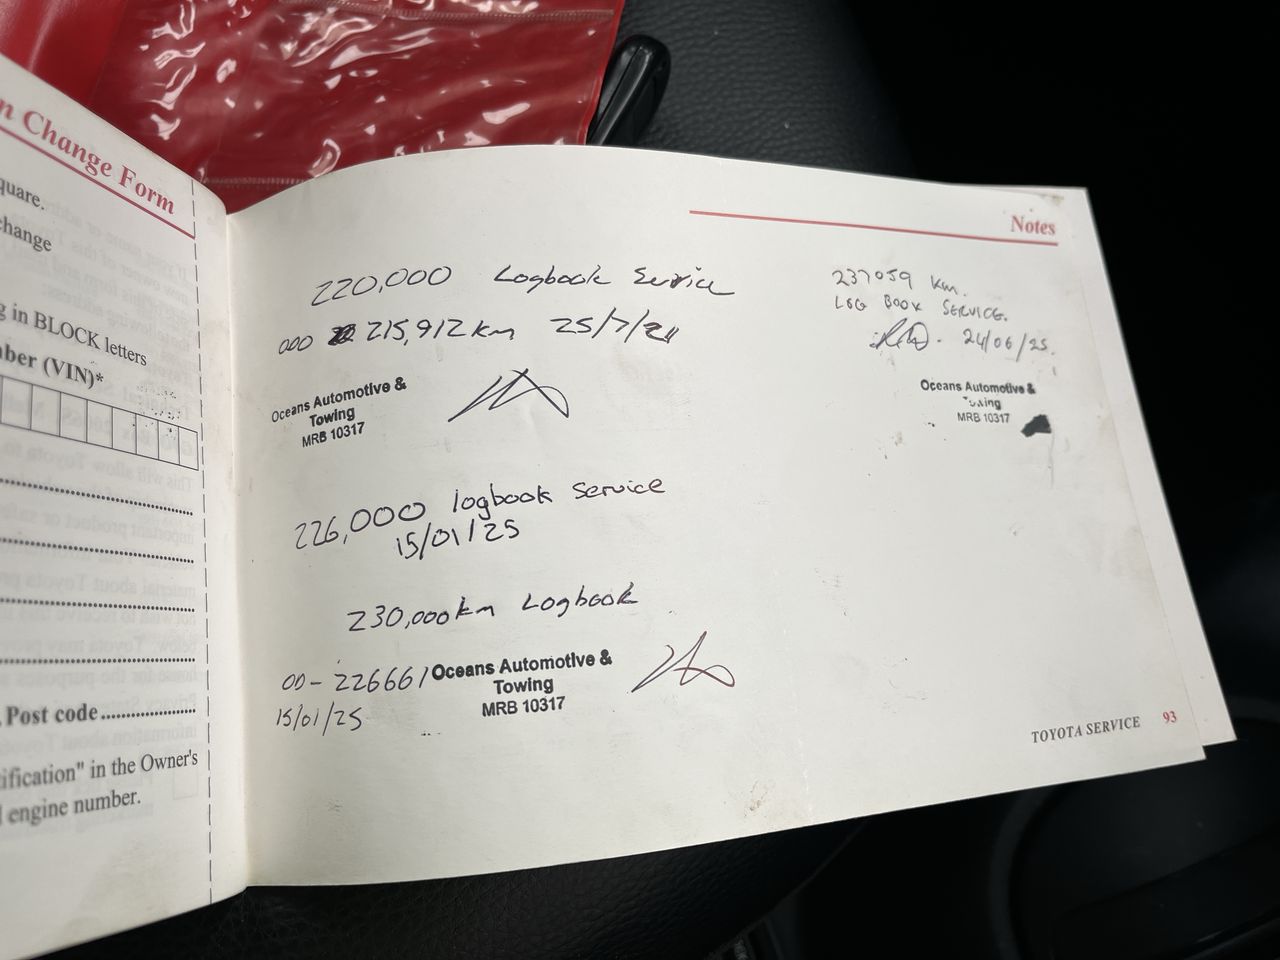 n Change Form
quare.
change
g in BLOCK letters
ber (VIN)*
Post code
ification" in the Owner's
engine number.
Notes
220,000 Logbook Service
000 215,912km 25/7/
Oceans Automotive &
Towing
MRB 10317
226,000 logbook Service
15/01/25
230,000km Logbook
00- 226661
15/01/25
Oceans Automotive &
Towing
MRB 10317
237059 km.
LOG BOOK SERVICE.
24/06/25.
Oceans Automotive &
Towing
MRB 10317
TOYOTA SERVICE 93